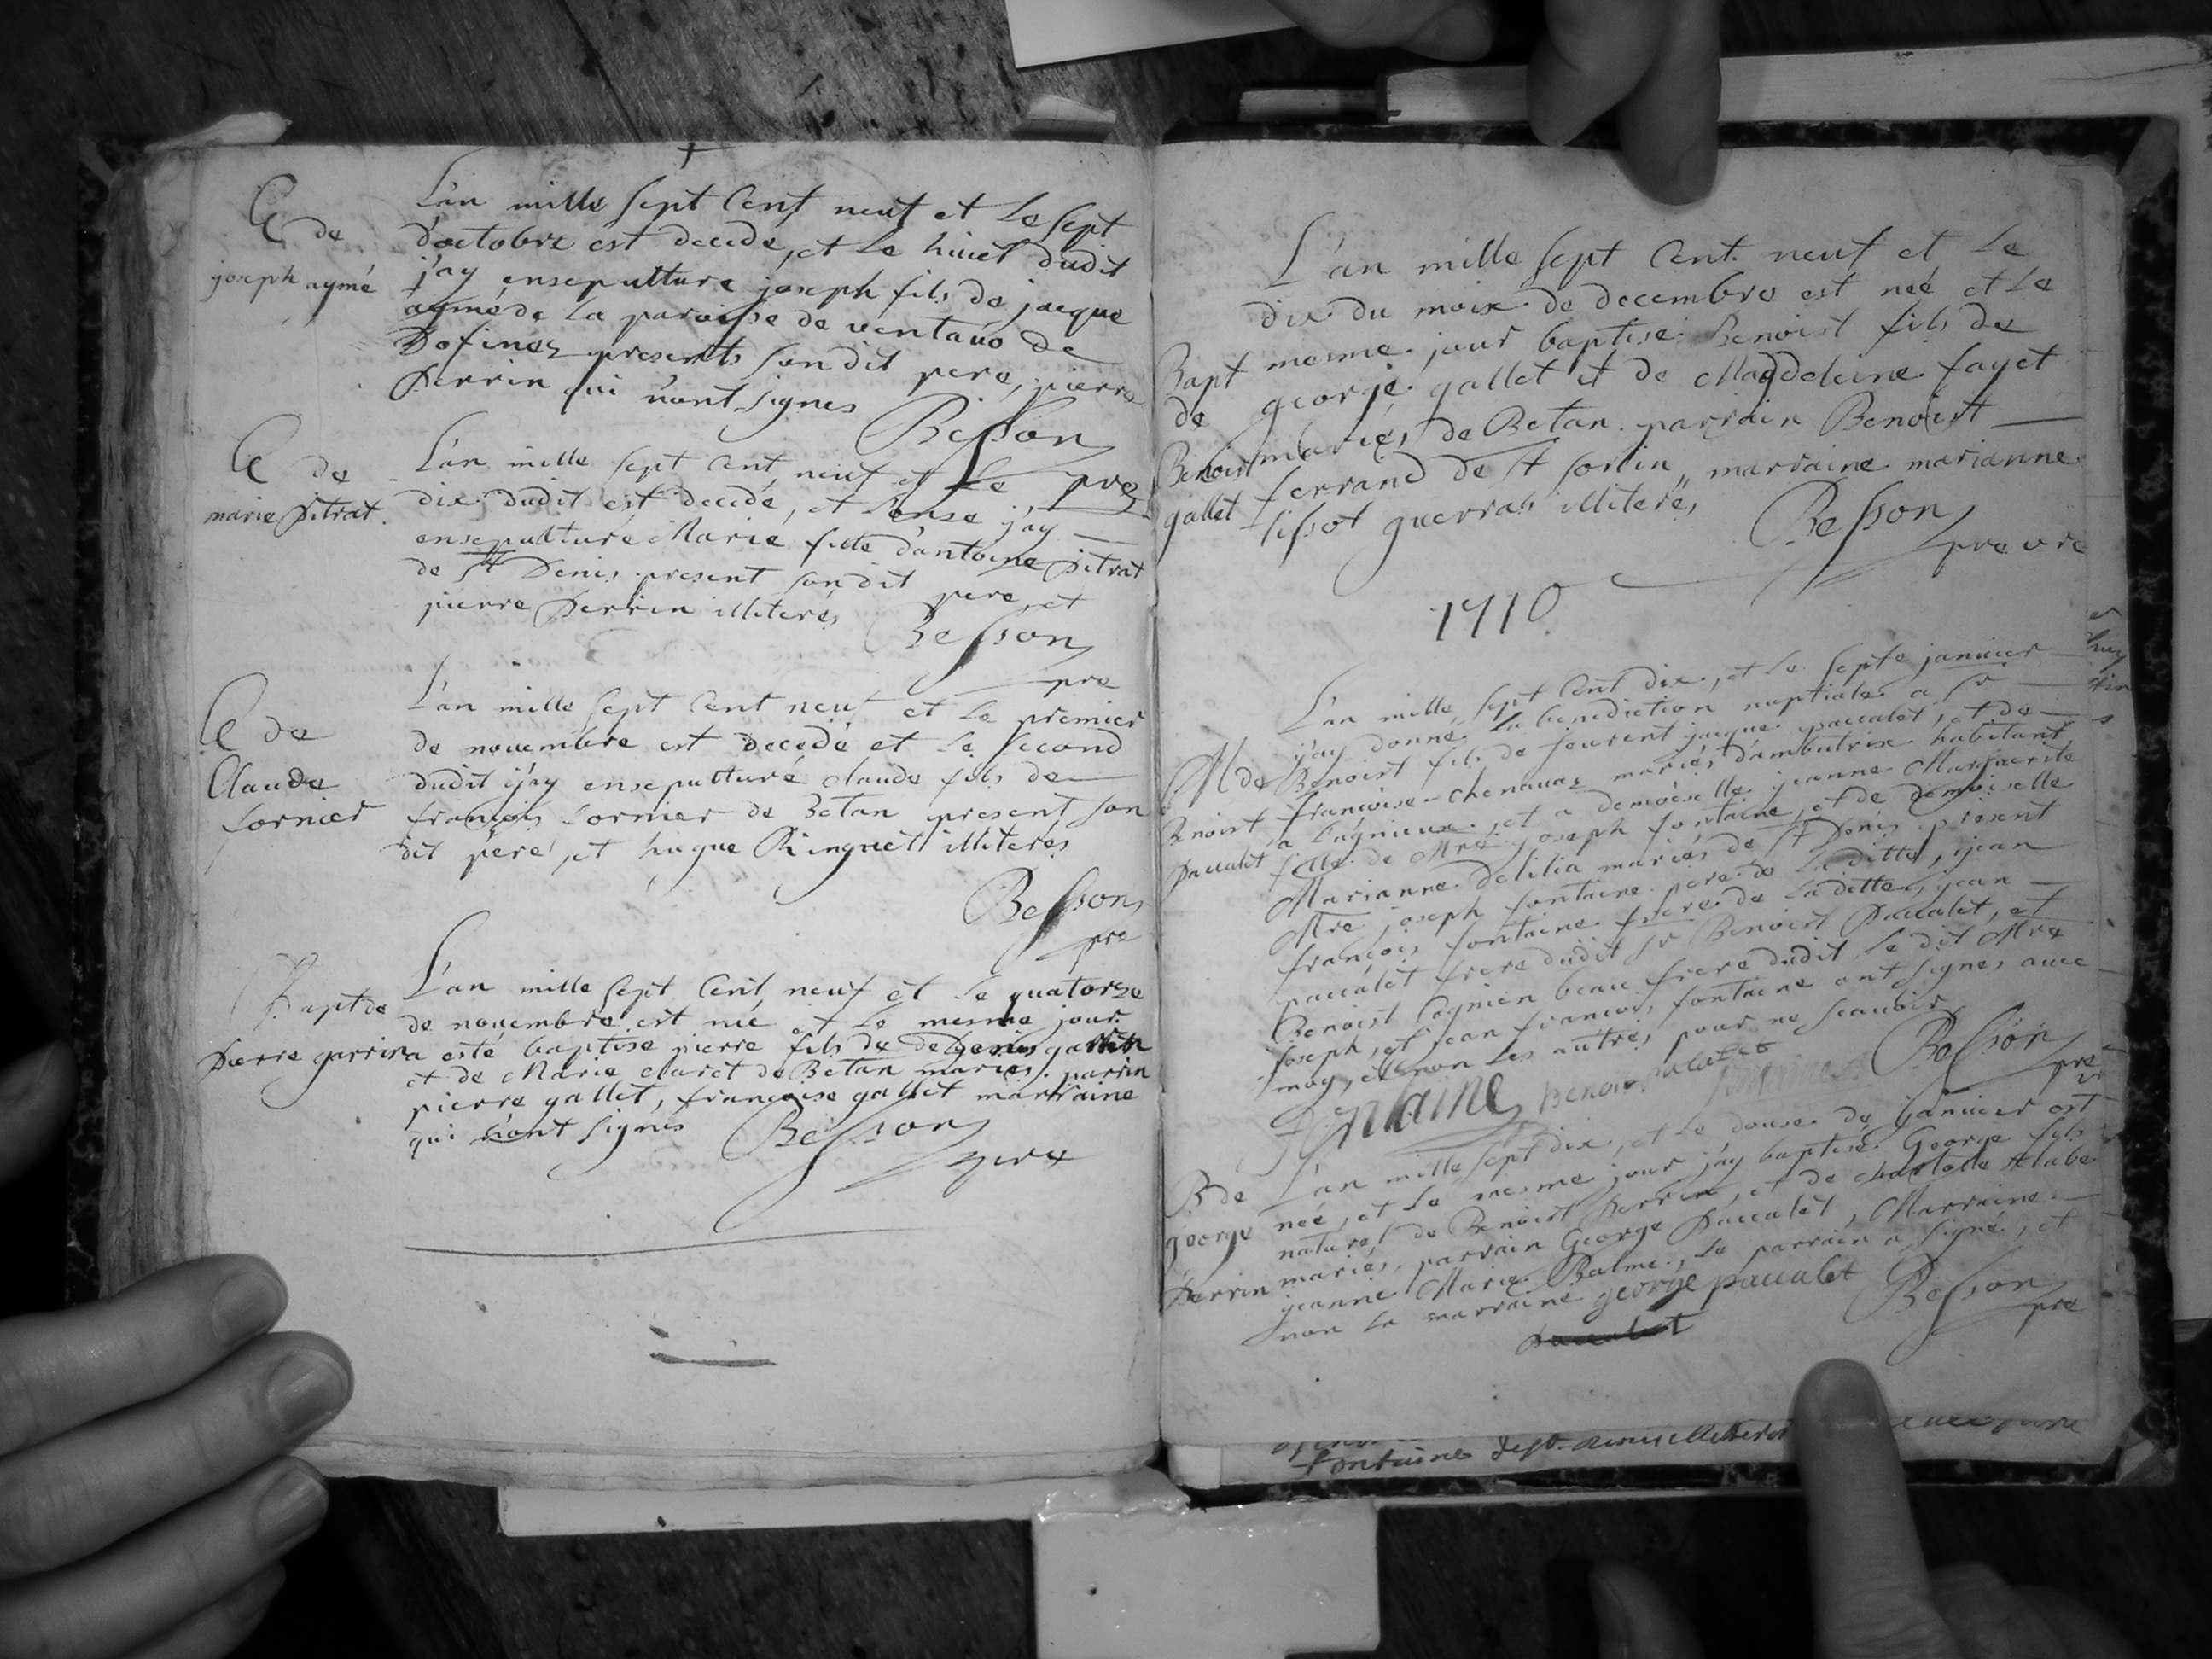 C de
joseph aymé
L'an mille sept Cent neuf et le sept
d'octobre est decedé, et le huict dudit
j'ay ensepulturé joseph fils de jacque
aymé de la paroisse de ventavo de
Dofinez presents son dit pere, pierre
Perrin qui n'ont signes
Besson
pre
C de
marie Pitrat
L'an mille sept Cent neuf et le
dix dudit est decedé, et l'onse j'ay
ensepulturé Marie fille d'antoine Pitrat
de St Denis present son dit pere et
pierre Perrin illiterés
Besson
pre
C de
Claude
Cornier
L'an mille sept Cent neuf et le premier
de novembre est decedé et le second
dudit j'ay ensepulturé Claude fils de
françois Cornier de Betan present son
dit pere, et hugue Ringuet illiterés
Besson
pre
Bapt de
Pierre garrin
L'an mille sept Cent neuf et le quatorze
de novembre est nié et le mesme jour
a esté baptisé pierre fils de denis garrin
et de Marie Claret de Betan mariés parrin
pierre gallet, françoise gallet marraine
qui n'ont signés
Besson
pre
Bapt
de
Benoist
gallet
L'an mille sept Cent neuf et le
dix du mois de decembre est neé et le
mesme jour baptisé Benoist fils de
george gallet et de Magdeleine fayet
mariés de Betan parrain Benoist
ferrand de St sorlin, marraine marianne
tissot guerras illiterés
Besson
preure
1710
M de
Benoist
Paccalet
L'an mille sept Cent dix, et le septe janvier
j'ay donné la benediction nuptiales a sr
Benoist fils de feurent jacque paccalet, et de
françoise chenavaz mariés d'ambutrix habitant
a Lagnieux, et a demoiselle jeanne Marguerite
fille de Mre joseph fontaine, et de demoiselle
Marianne Delilia mariés de St Denis present
Mre joseph fontaine pere de laditte, jean
françois fontaine frere de laditte, jean
paccalet frere dudit sr Benoist Paccalet, et
Benoist Cognien beau frere dudit le dit Mre
joseph, et jean françois fontaine ont signes avec
moy, et non les autres pour ne scavoir
fontaine
Benoist Pacalet
Besson
pre
B de
george
Perrin
L'an mille sept dix, et le douse de janvier est
neé, et le mesme jour j'ay baptisé George fils
naturel de Benoist Perrin, et de Charlotte Alabe
mariés, parrain George Paccalet, Marraine
jeanne Marie Balme, le parrain a signé, et
non la marraine
george paccalet
Besson
pre
fontaine